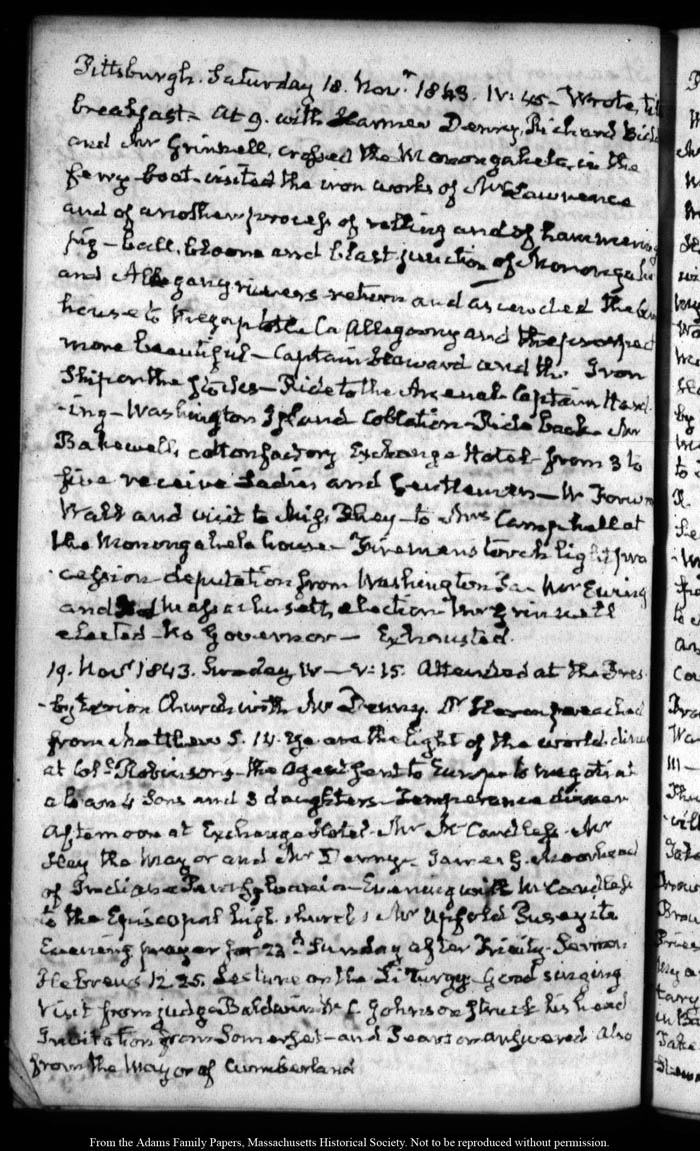 Pittsburgh. Saturday 18. Novr. 1843. IV: 45 - Wrote, till
breakfast - At 9. with Harmer Denny, Richard
and Mr Grinnell, crossed the Monongahela, in the
ferry-boat - visited the iron works of Mr Lawrence
and of another process of rolling and of hammering
pig - ball, bloom and blast junction of Monongahela
and Allegany rivers return and ascended the
house to the Ca Allegany and the prospect
more beautiful - Captain Howard and the Iron
Ship on the stocks - Ride to the Arsenal Captain Hard
-ing - Washington Island Collation - Ride back. Mr
Bakewell, cotton factory Exchange Hotel - from 3 to
five receive Ladies and Gentlemen - W Forw
Walk and visit to - to Mrs Campbell at
the Monongahela house - Firemans torch light pro
-cession - deputation from Washington Mr Ewing
and Massachusetts election - Mr Grinnell
elected - No Governor - Exhausted.
19. Novr 1843. Sunday IV - V: 15. Attended at the Pres
-byterian Church with Mr Denny. Dr Heron preached
from Matthew 5. 14. Ye are the light of the world. dined
at Coll Robinson's - the Agent sent to Europe to negotiate
a loan 4 Sons and 3 daughters - Temperance dinner
Afternoon at Exchange Hotel. Mr McCandless - Mr
Hay the Mayor and Mr Denny - James G. Moorhead
of Indiana Pennsylvania - Evening with McCandless
to the Episcopal high church, Mr Upfold Puseyite
Evening prayer for 23d Sunday after Trinity - Sermon
Hebrews 12. 25. Lecture on the Liturgy - Good singing
Visit from judge Baldwin W. C Johnson struck his head
Invitation from Somerset - and Pearson answered also
from the Mayor of Cumberland
From the Adams Family Papers, Massachusetts Historical Society. Not to be reproduced without permission.